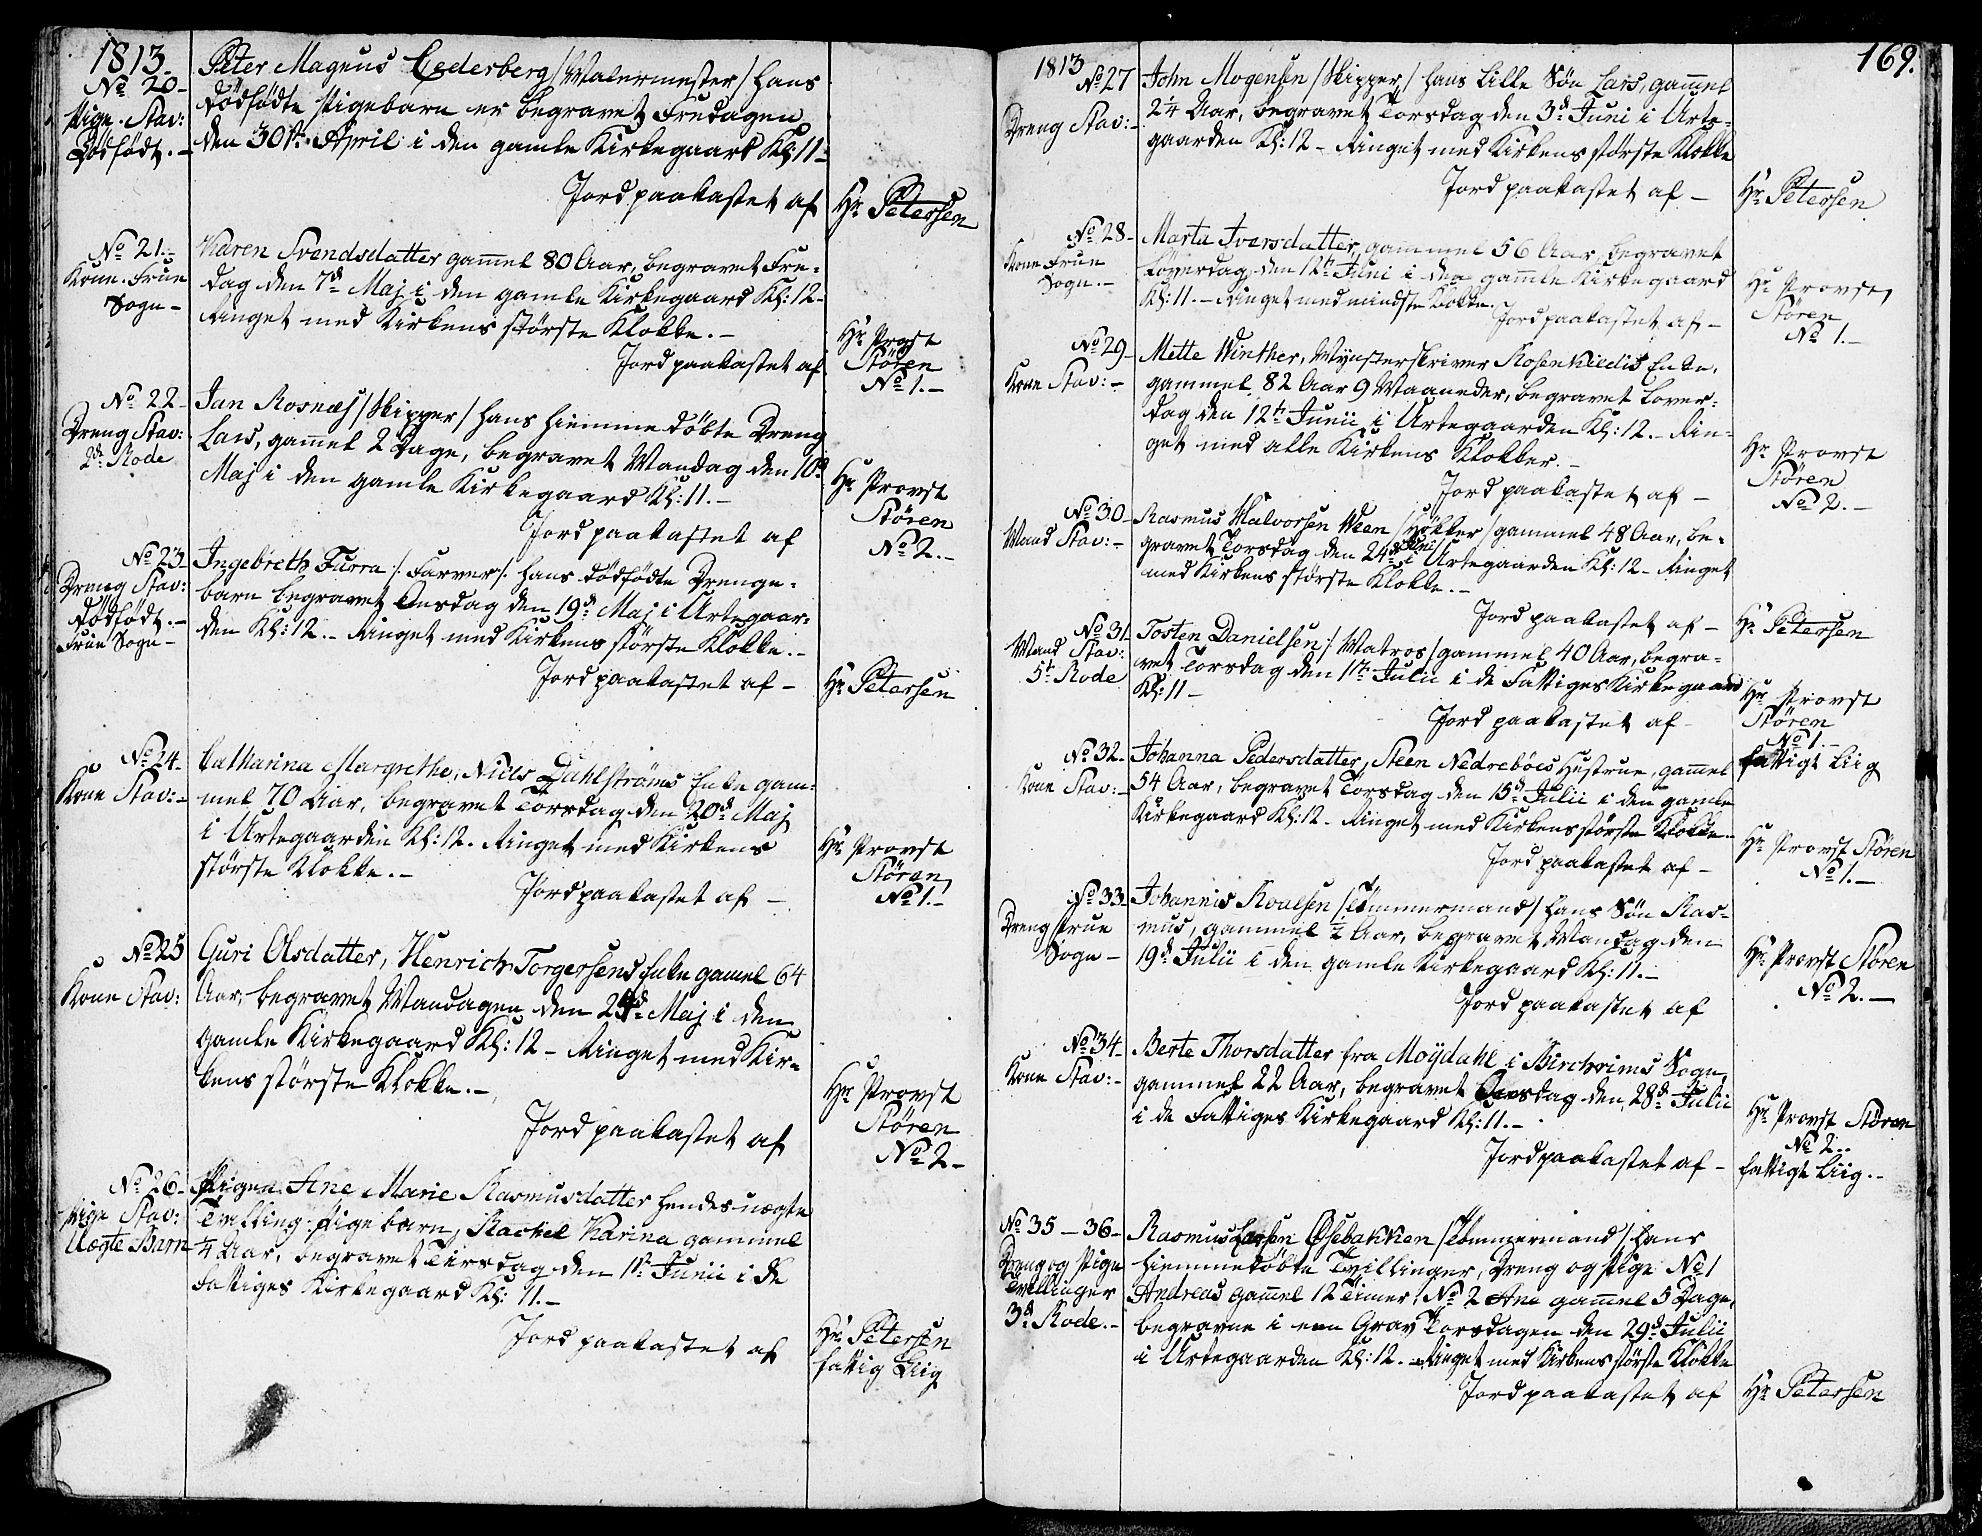 1813.
No 20-
Pige. Stav:
Dödfödt.-
Peter Magnus Cederberg /:Malermester/ hans
dödfödte Pigebarn er begravet Fredagen
den 30te April i den gamle Kirkegaard Kl: 11-
Jord paakastet af
Hr Petersen
No 21.-
Kone. Frue
Sogn-
Karen Svendsdatter gam̄el 80 Aar, begravet Fre-
dag den 7de Maj i den gamle Kirkegaard Kl: 12-
Ringet med Kirkens störste Klokke.-
Jord paakastet af
Hr Provst
Stören
No 1.-
No 22-
Dreng Stav:
2d Rode
Jan Rosnæs /Skipper/ hans hiemme döbte Dreng
Lars, gam̄el 2 Dage, begravet Mandag den 10de
Maj i den gamle Kirkegaard Kl: 11.-
Jord paakastet af
Hr Provst
Stören
No 2.-
No 23-
Dreng Stav:
dödfödt.-
Frue Sogn-
Ingebreth Furra /: Farver/. hans dödfödte Drenge-
barn begravet Onsdag den 19de Maj i Urtegaar-
den Kl: 12.- Ringet med Kirkens störste Klokke.-
Jord paakastet af-
Hr Petersen
No 24-
Kone Stav:-
Catharina Margrethe, Niels Dahlströms Enke gam-
mel 70 Aar, begravet Torsdag den 20de Maj
i Urtegaarden Kl: 12. Ringet med Kirkens
störste Klokke.-
Jord paakastet af-
Hr Provst
Stören
No 1.-
No 25
Kone Stav:
Guri Olsdatter, Henrich Torgersens Enke gam̄el 64
Aar, begravet Mandagen den 24de Maj i den
gamle Kirkegaard Kl: 12- Ringet med Kir-
kens störste Klokke.-
Jord paakastet af
Hr Provst
Stören
No 2-
No 26-
Pige Stav:
Uægte Barn
Pigen Ane Marie Rasmusdatter hendes uægte
Tvilling Pigebarn, Rachel Karina gammel
1/4 Aar, begravet Tirsdag den 1te Junii i de
Fattiges Kirkegaard Kl: 11.-
Jord paakastet af
Hr Petersen
fattig Liig
169.
1813
No 27
Dreng Stav:-
John Mogensen /Skipper/ hans lille Sön Lars, gam̄el
2 1/4 Aar, begravet Torsdag den 3de Juni i Urte-
gaarden Kl: 12- Ringet med Kirkens störste Klokke
Jord paakastet af-
Hr Petersen
No 28-
Kone Frue
Sogn.-
Marta Iversdatter, gammel 56 Aar, begravet
Löverdag den 12te Juni i den gamle Kirkegaard
Kl: 11.- Ringet med mindste Klokke.
Jord paakastet af-
Hr Provst
Stören
No 1.-
No 29-
Kone Stav:-
Mette Winther, Mynsterskriver Rosenkildes Enke,
gammel 82 Aar 9 Maaneder, begravet Löver-
dag den 12te Junii i Urtegaarden Kl: 12.- Rin-
get med alle Kirkens Klokker.-
Jord paakastet af-
Hr Provst
Stören
No 2.-
No 30-
Mand Stav:-
Rasmus Halvorsen Ween /Hökker/ gammel 48 Aar, be-
gravet Torsdag den 24de Juni i Urtegaarden Kl: 12- Ringet
med Kirkens störste Klokke.-
Jord paakastet af-
Hr Petersen
No 31
Mand Stav:
5te Rode
Tosten Danielsen /:Matros/ gammel 40 Aar, begra-
vet Torsdag den 1te Julii i de Fattiges Kirkegaard
Kl: 11-
Jord paakastet af
Hr Provst
Stören
No 1.-
fattigt Liig
No 32.
Kone Stav:-
Johanna Pedersdatter, Steen Nedreböes Hustrue, gam̄el
54 Aar, begravet Torsdag den 15de Julii i den gamle
Kirkegaard Kl: 12- Ringet med Kirkens störste Klokke-
Jord paakastet af-
Hr Provst Stören
No 1.-
No 33-
Dreng Frue
Sogn-
Johannis Roalsen /Tömmermand/ hans Sön Ras-
mus, gammel 1/2 Aar, begravet Mandag den
19de Julii i den gamle Kirkegaard Kl: 11.-
Jord paakastet af
Hr Provst Stören
No 2.-
No 34-
Kone Stav:-
Berte Thorsdatter fra Moÿdahl i Birchrims Sogn,
gammel 22 Aar, begravet Onsdag den 28de Julii
i de Fattiges Kirkegaard Kl: 11.-
Jord paakastet af-
Hr Provst Stören
No 2.-
fattigt Liig.-
No 35-36-
Dreng og Pige
Tvillinger
3de Rode.-
Rasmus Larsen Osebakken /Tömmermand/ hans
hiemmedöbte Tvillinger, Dreng og Pige No 1
Andreas gam̄el 12 Timer, No 2 Ane gam̄el 5 Dage,
begravne i een Grav Torsdagen den 29de Julii
i Urtegaarden Kl: 12.- Ringet med Kirkens störste Klokke
Jord paakastet af
Hr Petersen